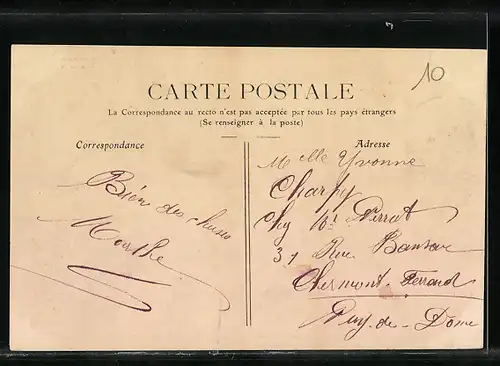 10
CARTE POSTALE
La Correspondance au recto n'est pas acceptée par tous les pays étrangers
(Se renseigner à la poste)
Correspondance
Adresse
Bien des choses
Marthe
Melle Yvonne
Charpy
Chy Mr Perrat
31 Rue
Clermont-Ferrand
Puy-de-Dome